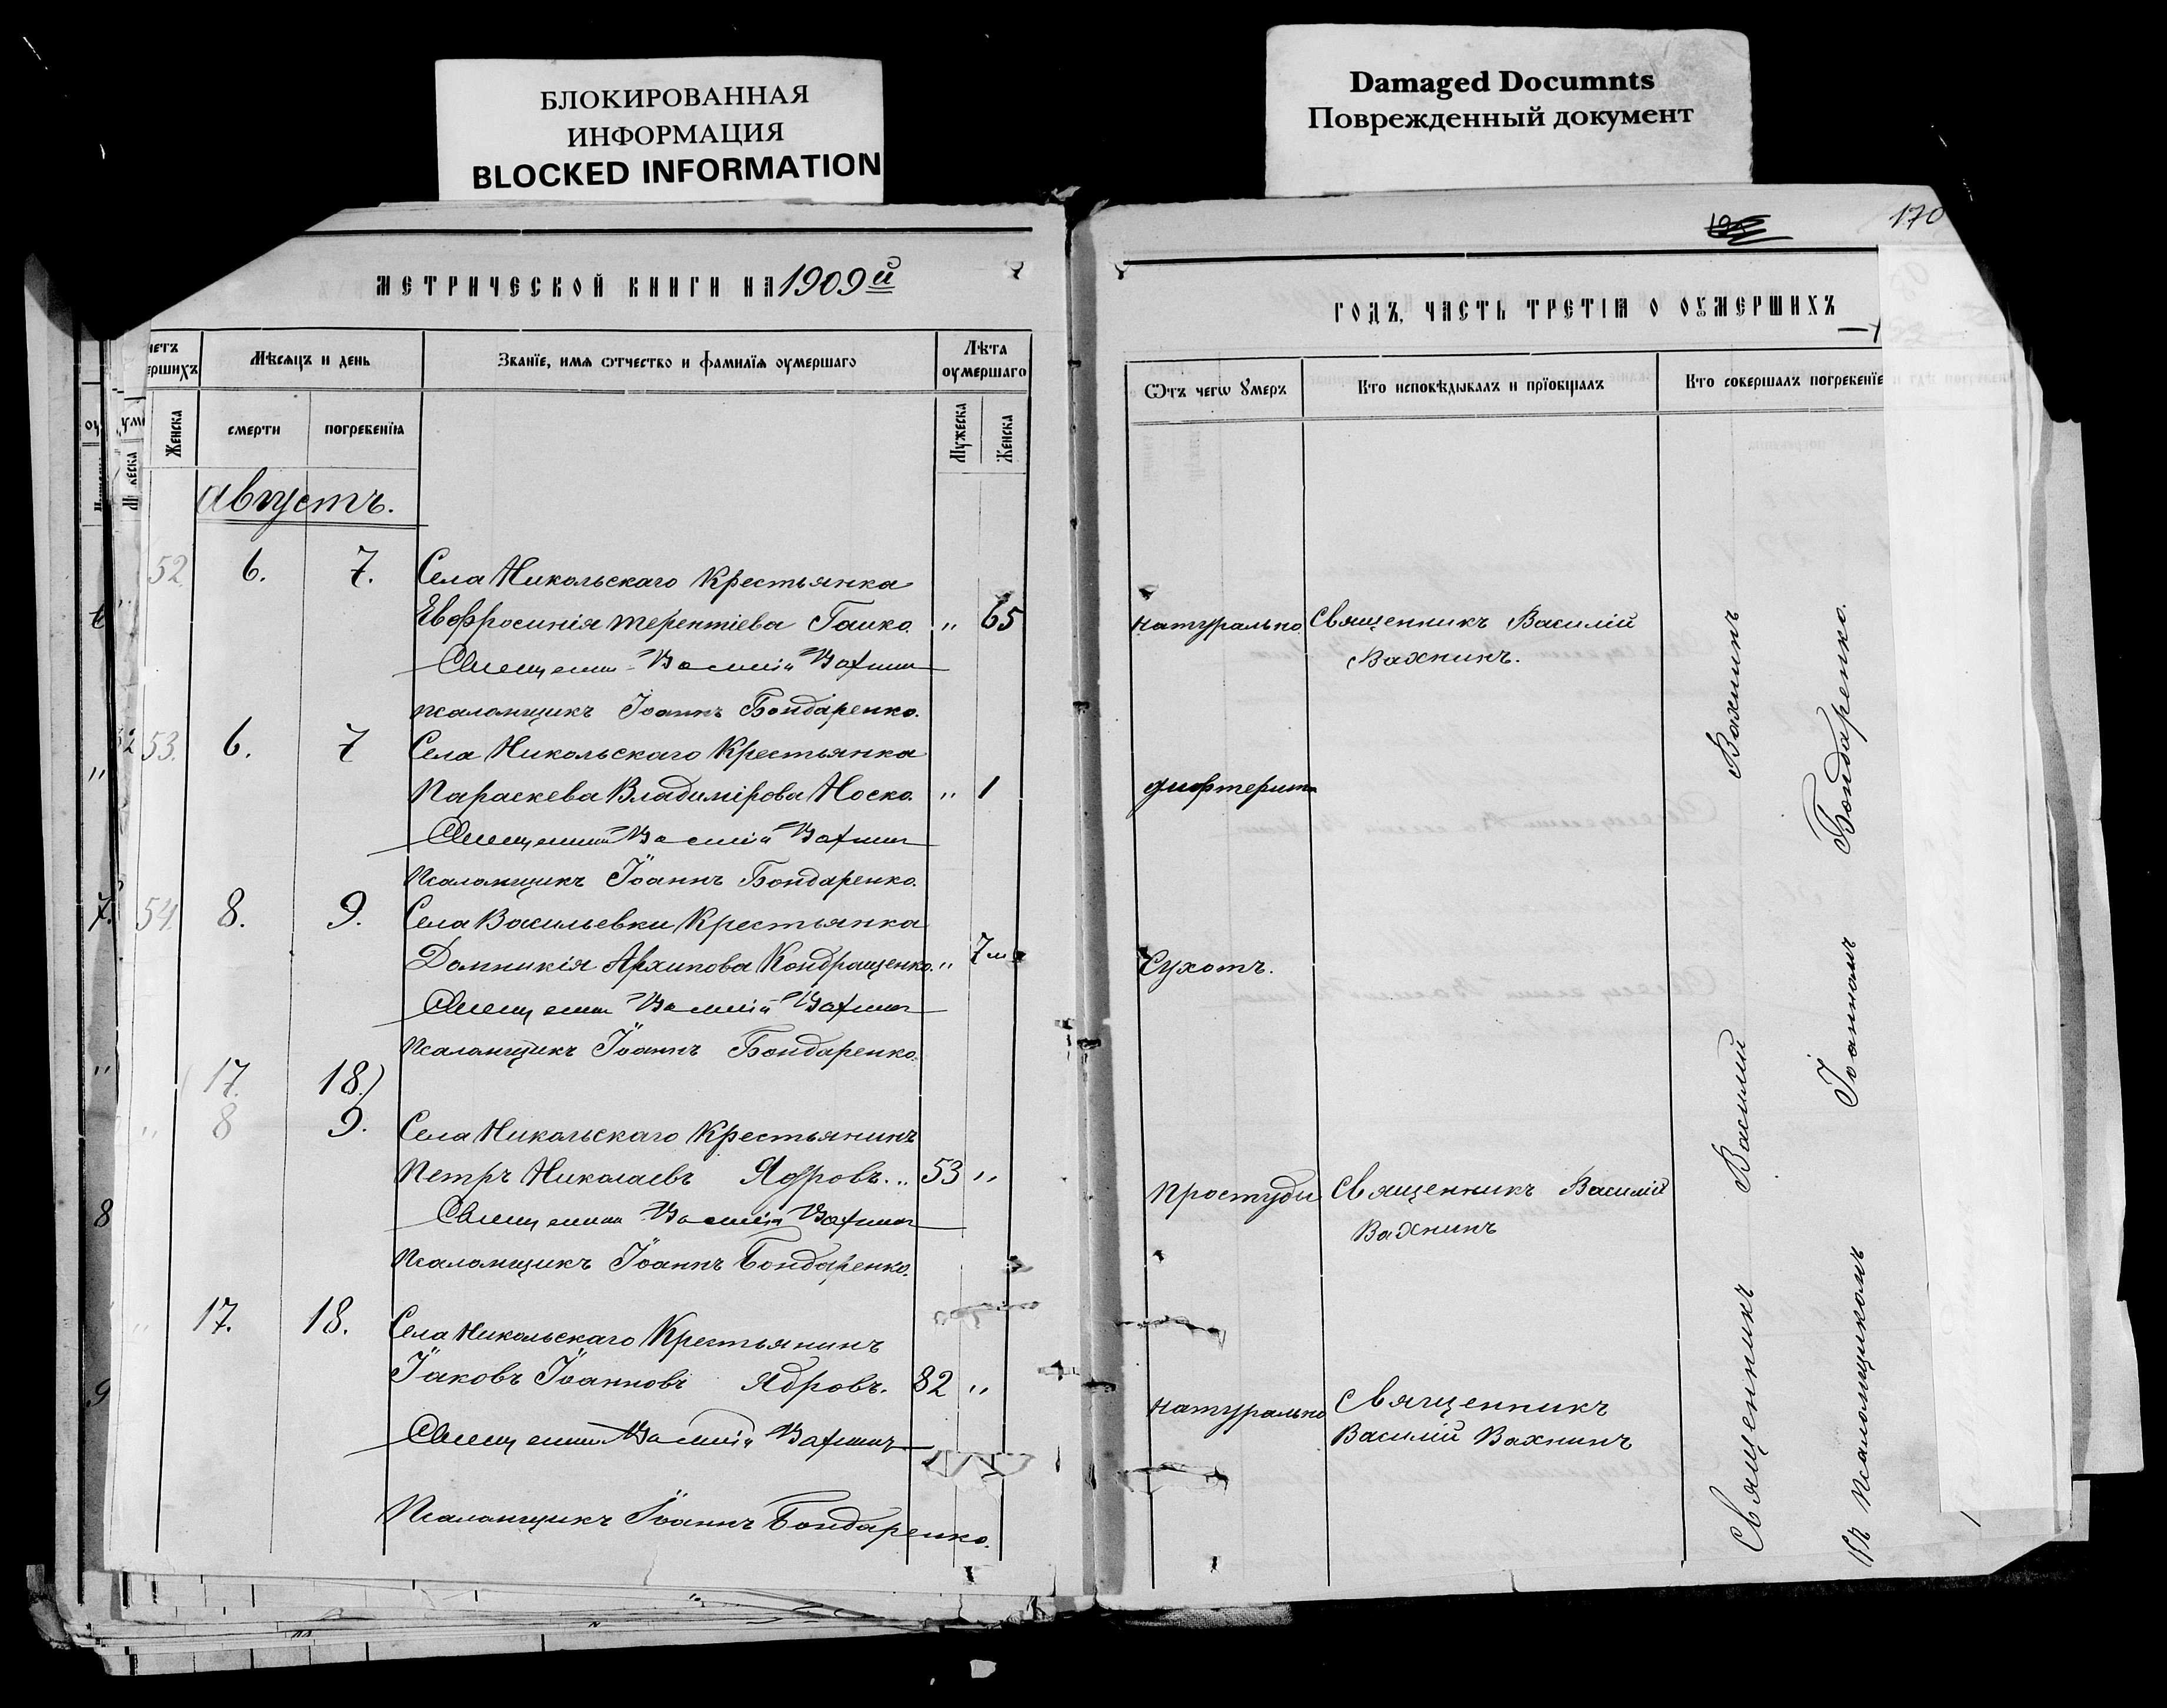 БЛОКИРОВАННАЯ
ИНФОРМАЦИЯ
BLOCKED INFORMATION
Damaged Documnts
Поврежденный документ
170
МЕТРИЧЕСКОЙ КНИГИ НА 1909й
ГОДЪ, ЧАСТЬ ТРЕТІЯ О ОУМЕРШИХЪ
Мѣсяцъ и день
Званїе, имя ѿтчество и фамилїя оумершаго
Лѣта
оумершаго
Ѿтъ чегѡ Умеръ
Кто исповѣдывалъ и прїобщалъ
Кто совершалъ погребенїе
Женска
смерти
погребенїя
Мужеска
Женска
Августъ.
52. 6. 7. Села Никольскаго Крестьянка
Евфросинія Терентіева Гайко. " 65 натурально. Священникъ Василій
Священник Василій Вахнин Вахнинъ.
псаломщикъ Іоаннъ Бондаренко.
53. 6. 7 Села Никольскаго Крестьянка
Параскева Владимірова Носко. " 1 дифтерит
Священник Василій Вахнин
Псаломщикъ Іоаннъ Бондаренко.
54. 8. 9. Села Васильевки Крестьянка
Домникія Архипова Кондращенко. " 7 м Сухотъ.
Священник Василій Вахнин
Псаломщикъ Іоаннъ Бондаренко.
(17. 18.)
" 8 9. Села Никольскаго Крестьянинъ
Петръ Николаевъ Ядровъ. 53 " Простуды Священникъ Василій
Священник Василій Вахнин Вахнинъ
Псаломщикъ Іоаннъ Бондаренко.
" 17. 18. Села Никольскаго Крестьянинъ
Іаковъ Іоанновъ Ядровъ. 82 " натурально Священникъ
Священник Василій Вахнинъ Василій Вахнинъ
Псаломщикъ Іоаннъ Бондаренко.
Священникъ Василій Вахнинъ
съ псаломщикомъ Іоанномъ Бондаренко.